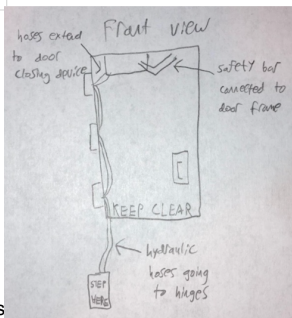 Front view
hoses extend
to door
closing device
safety bar
connected to
door frame
KEEP CLEAR
hydraulic
hoses going
to hinges
STEP
HERE
s